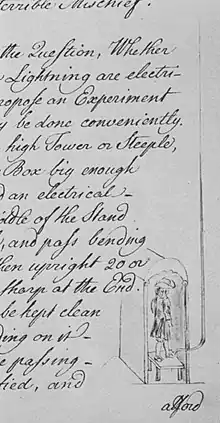 terrible Mischief.
the Question, Whether
Lightning are electri-
ropose an Experiment
y be done conveniently.
high Tower or Steeple,
Box big enough
d an electrical-
iddle of the Stand
, and pass bending
hen upright 20 or
sharp at the End.
be kept clean
ding on it-
e passing-
fied, and
afford